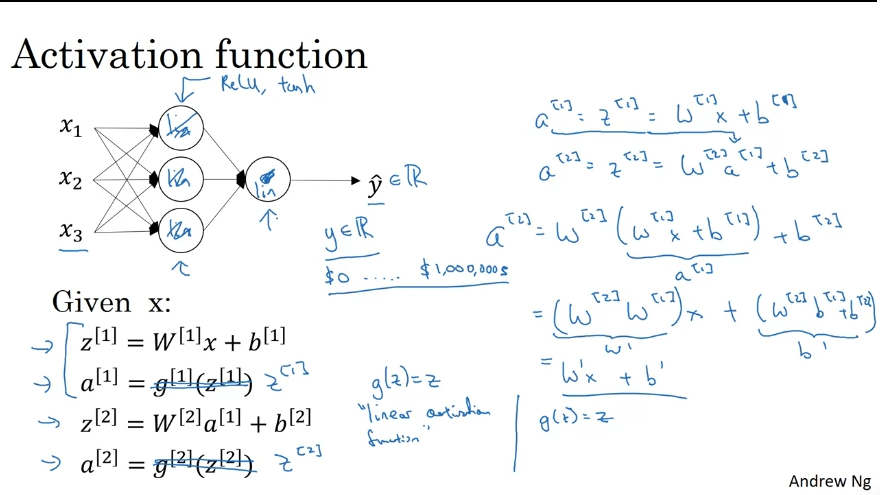 Activation function
ReLU, tanh
x₁
x₂
x₃
lin
ŷ ∈ ℝ
y ∈ ℝ
$0 ..... $1,000,000s
Given x:
→ z^[1] = W^[1]x + b^[1]
→ a^[1] = g^[1](z^[1]) z^[1]
→ z^[2] = W^[2]a^[1] + b^[2]
→ a^[2] = g^[2](z^[2]) z^[2]
g(z) = z
"linear activation
function"
a^[1] = z^[1] = W^[1]x + b^[1]
a^[2] = z^[2] = W^[2]a^[1] + b^[2]
a^[2] = W^[2](W^[1]x + b^[1]) + b^[2]
a^[1]
= (W^[2]W^[1])x + (W^[2]b^[1] + b^[2])
W' b'
= W'x + b'
g(z) = z
Andrew Ng